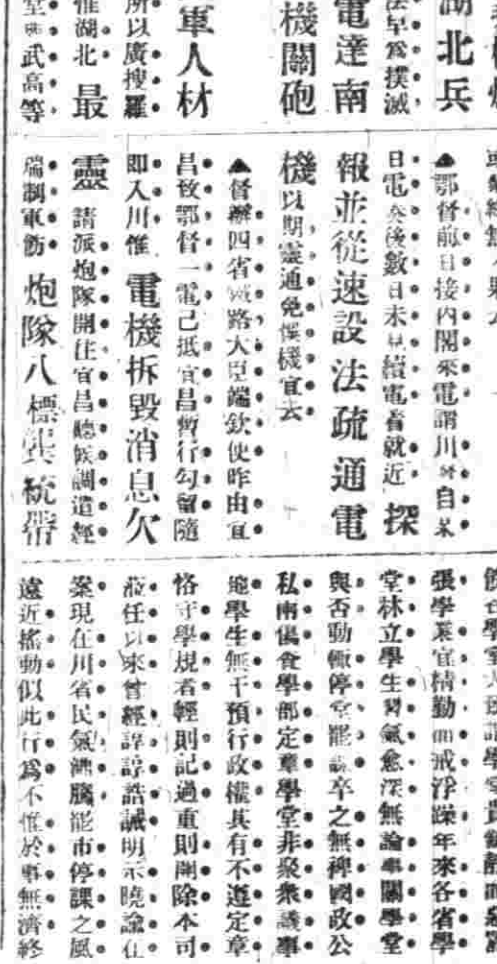 湖北兵
法早爲撲滅
電達南
機關砲
軍人材
所以廣搜羅
惟湖北最
武高等
▲鄂督前日接內閣來電謂川督自某
日電奏後數日未見續電着就近探
報並從速設法疏通電
機以期靈通免悞機宜去
▲督辦四省鐵路大臣端欽使昨由宜
昌致鄂督一電已抵宜昌暫行勾留隨
即入川惟電機拆毀消息欠
靈請派炮隊開往宜昌聽候調遣經
瑞制軍飭炮隊八標龔統帶
張學業宜精勤而戒浮躁年來各省學
堂林立學生習氣愈深無論事關學堂
與否動輒停堂罷課卒之無裨國政公
私兩傷查學部定章學堂非聚衆議事
地學生無干預行政權其有不遵定章
恪守學規者輕則記過重則開除本司
蒞任以來曾經諄諄誥誡明示曉諭在
案現在川省民氣沸騰罷市停課之風
遠近搖動似此行爲不惟於事無濟終